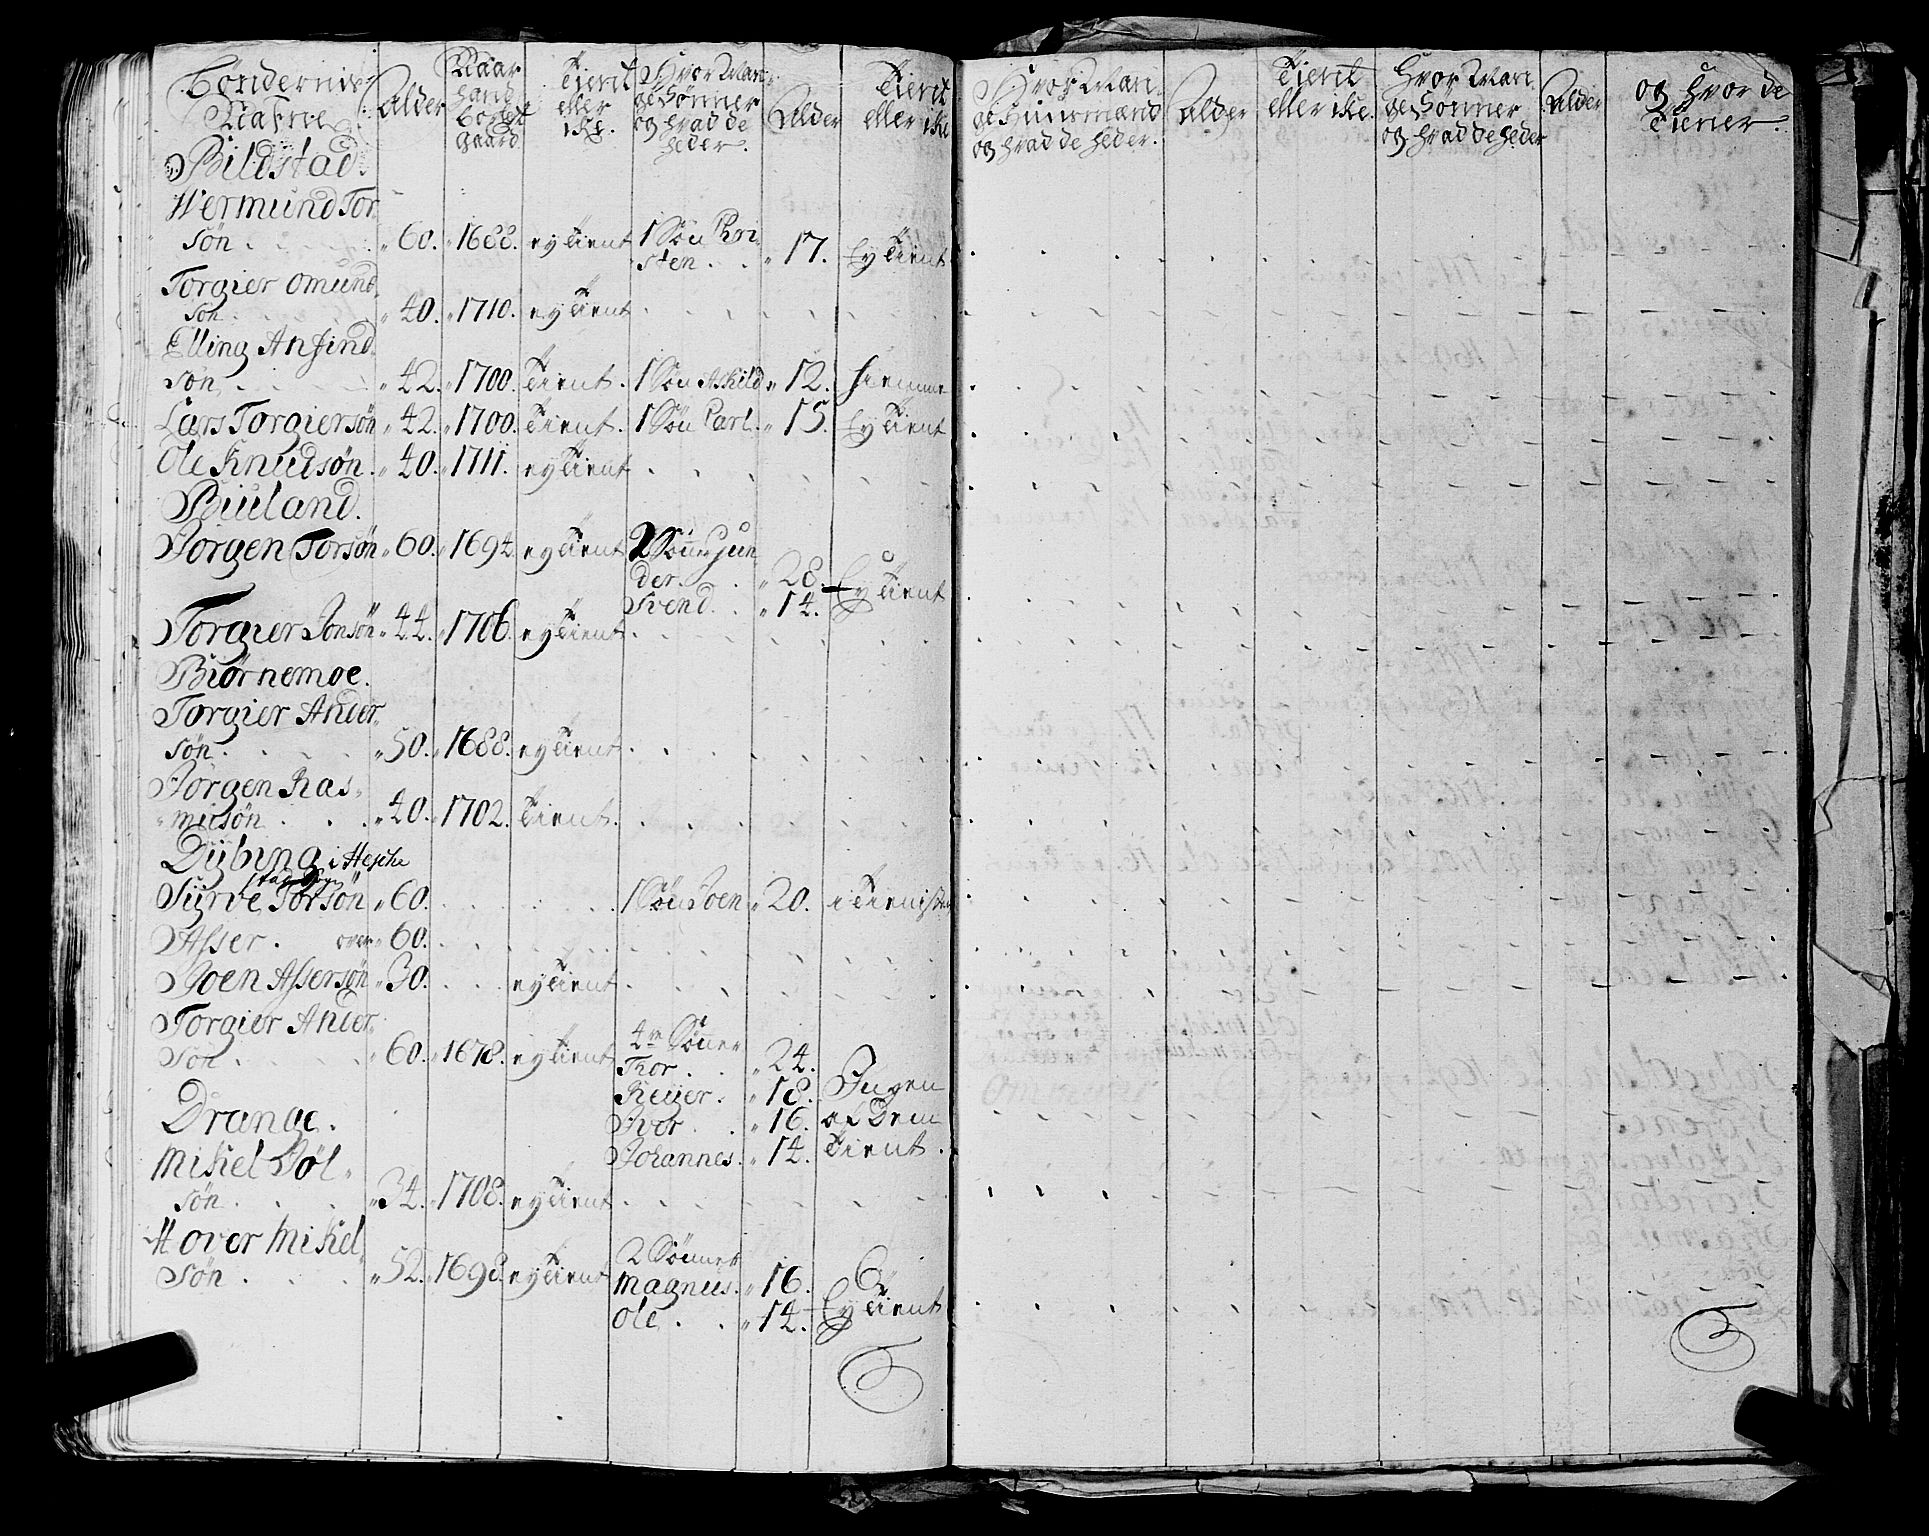 Bönderniß Nafne | Alder | Naar hand bøxlet gaard | Tient eller ike. | Hvor Mange Sønner og hvad de heder. | Alder | Tient eller ike | Hvor Mange Huusmænd og hvad de heder. | Alder | Tient eller ike. | Hvor Mange Sønner og hvad de heder | Alder | og hvor de Tiener.
Bildstad.
Wermund Tor
søn . . . 60. 1688. ey Tient 1 Søn Chri
sten . . 17. Ey Tient
Torgier Omund
søn. . . 40. 1710. ey Tient
Elling Anfind
søn . . . 42. 1700. Tient. 1 Søn Askild 12. hiemme
Lars Torgiersön 42. 1700. Tient. 1 Søn Carl. 15. Ey Tient
Ole Knudsøn. 40. 1711. ey Tient
Biuland.
Jörgen Torsön 60. 1694. ey Tient 2 Sønner Gun
der. . 28. Ey Tient
Svend. . 14.
Torgier Jonsön 44. 1706. ey Tient
Biørnemoe.
Torgier Ander
søn. . . 50. 1688. ey Tient
Jørgen Ras
musøn . . . 40. 1702. Tient.
Dybing i Heshe
stad Sogn
Syrve Torsön 60. . . . 1 Søn Joen 20. i Tieniste
Asser. over 60.
Joen Assersön 30. . . ey Tient
Torgier Ander
søn . . . 60. 1678. ey Tient 4re Sønner
Thor. . 24.
Reyer. 18. Ingen
Iver. . 16. af Dem
Johannes. 14. Tient.
Drange.
Mikel Jöl
søn . . . 34. 1708. ey Tient
Hover Mikel
søn . . . 52. 1698. ey Tient 2 Sønner
Magnus. 16.
Ole . . 14. Ey Tient